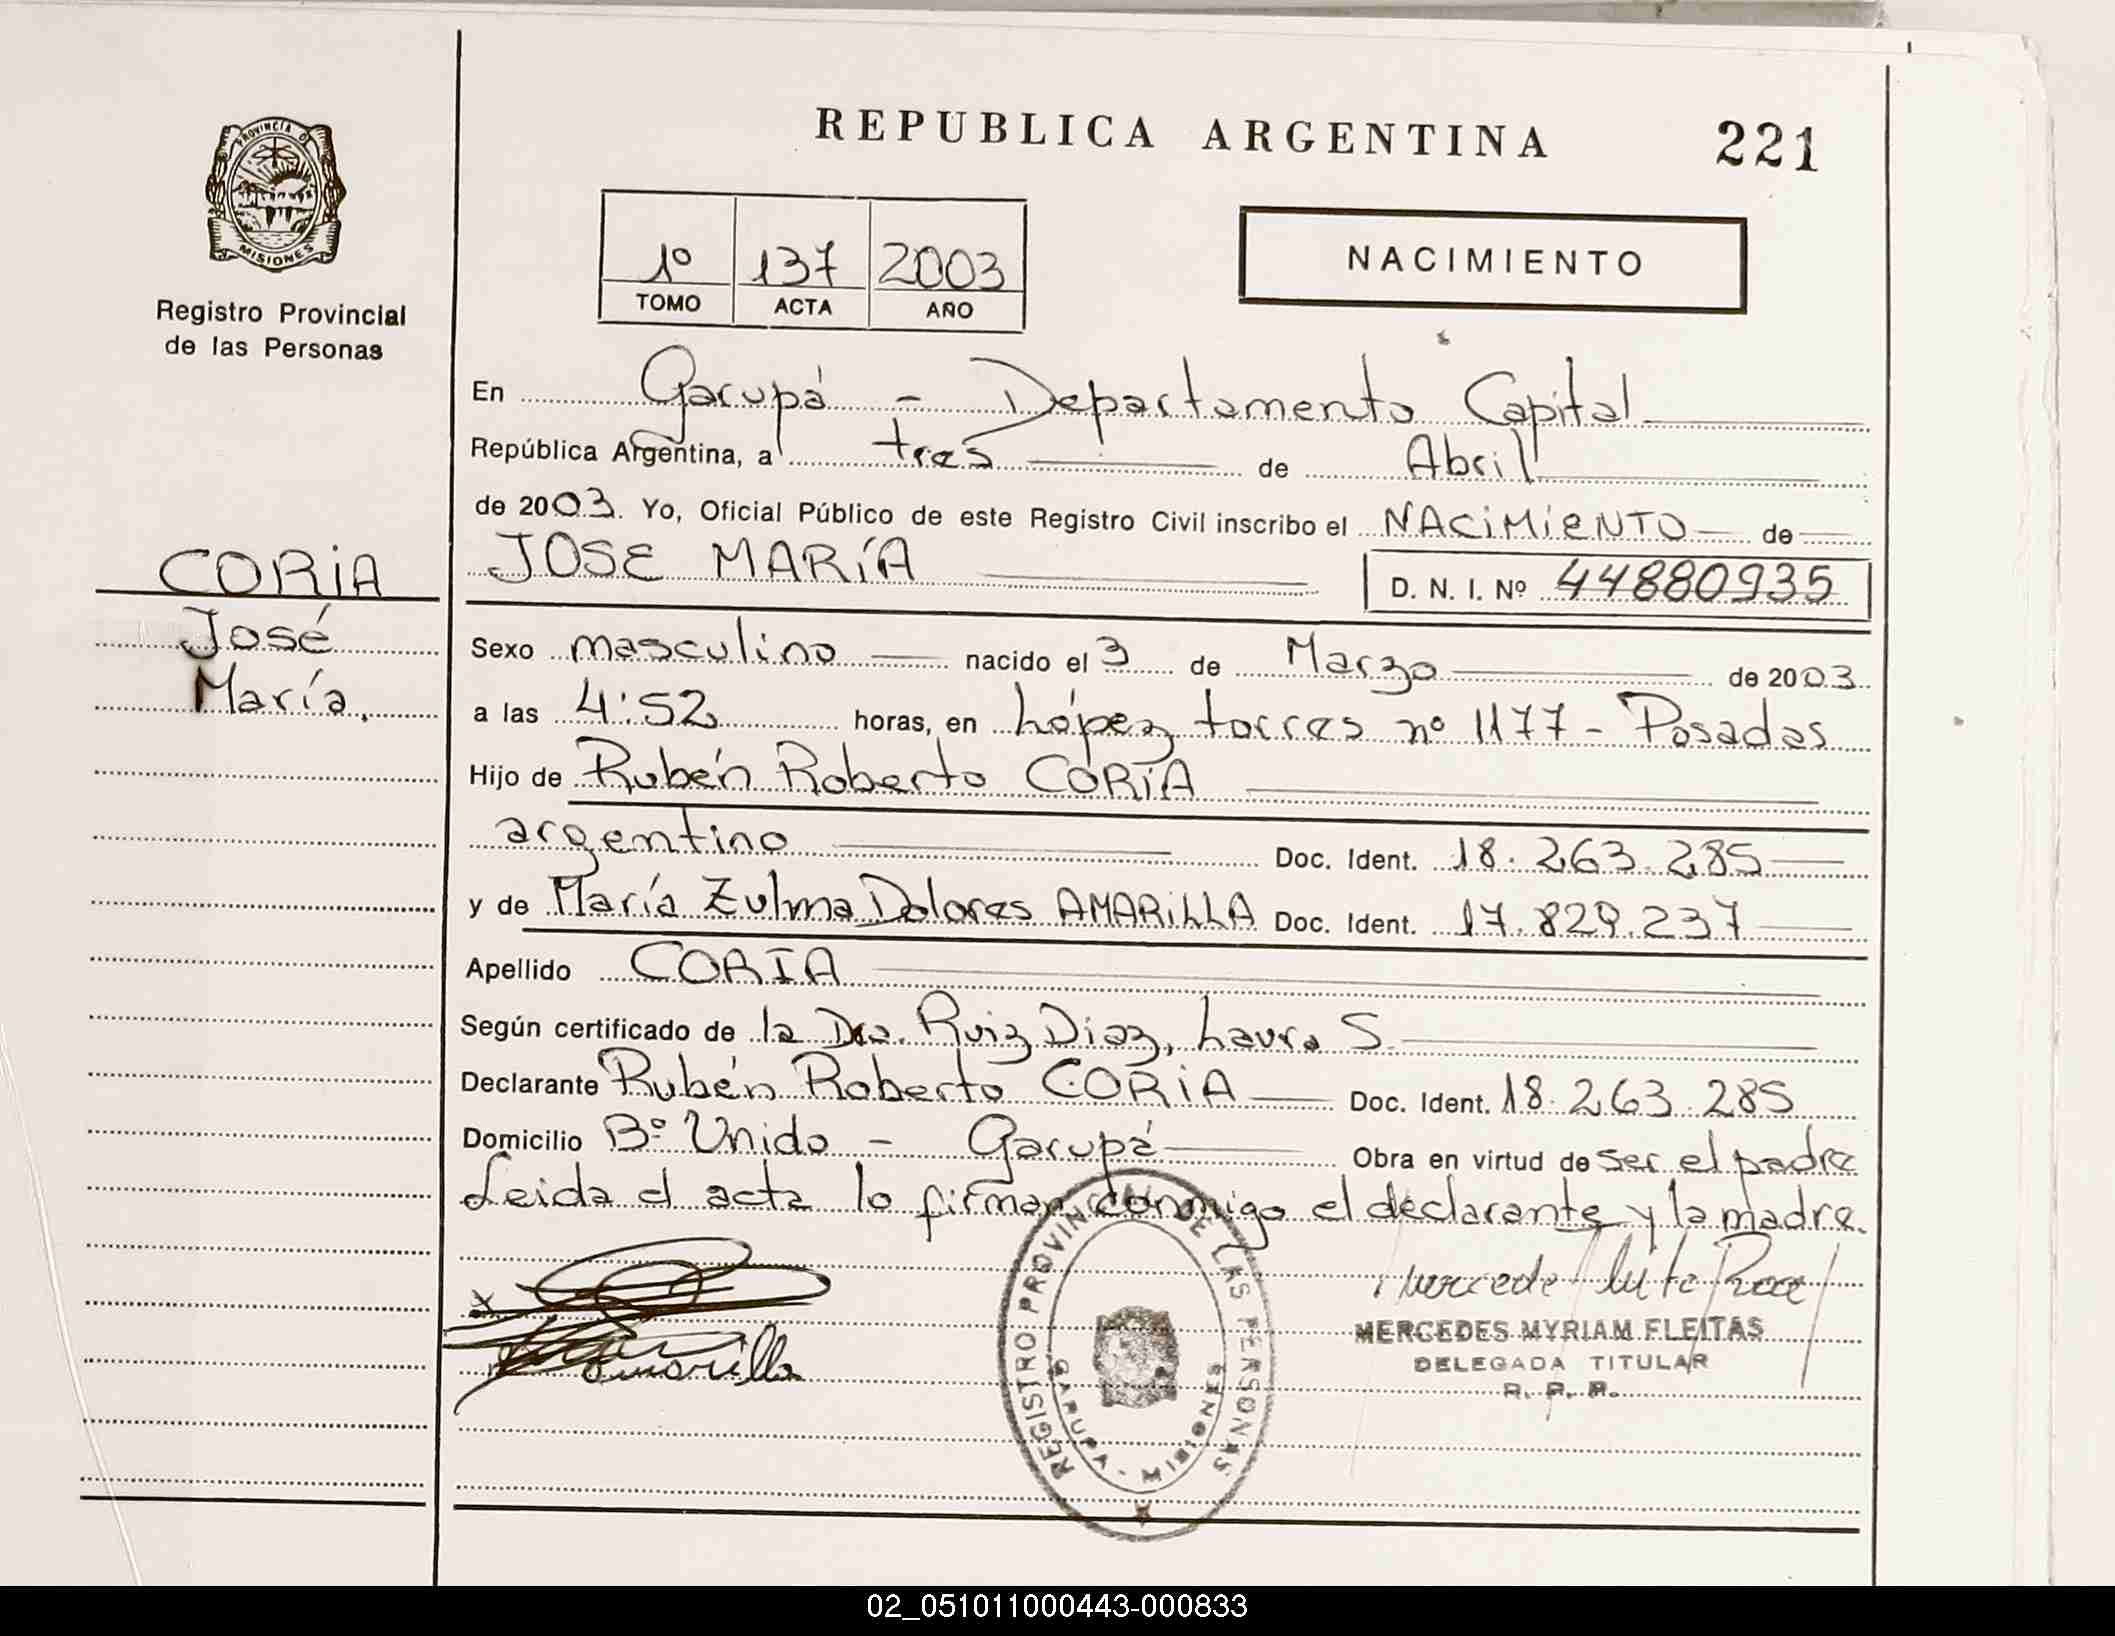 REPUBLICA ARGENTINA
221
PROVINCIA D
MISIONES
Registro Provincial
de las Personas
1º 137 2003
TOMO ACTA AÑO
NACIMIENTO
En Garupá - Departamento Capital
República Argentina, a tres de Abril
de 2003. Yo, Oficial Público de este Registro Civil inscribo el NACIMIENTO de
JOSE MARÍA D. N. I. Nº 44880935
CORIA
José
María.
Sexo masculino nacido el 3 de Marzo de 2003
a las 4:52 horas, en López torres nº 1177 - Posadas
Hijo de Rubén Roberto CORIA
argentino Doc. Ident. 18.263.285
y de María Zulma Dolores AMARILLA Doc. Ident. 17.829.237
Apellido CORIA
Según certificado de la Dra. Ruiz Diaz, Laura S.
Declarante Rubén Roberto CORIA Doc. Ident. 18.263.285
Domicilio Bº Unido - Garupá Obra en virtud de ser el padre
Leida el acta lo firman conmigo el declarante y la madre.
x
Amarilla
REGISTRO PROVINCIAL DE LAS PERSONAS
GARUPA - MISIONES
MERCEDES MYRIAM FLEITAS
DELEGADA TITULAR
R. P. P.
02_051011000443-000833